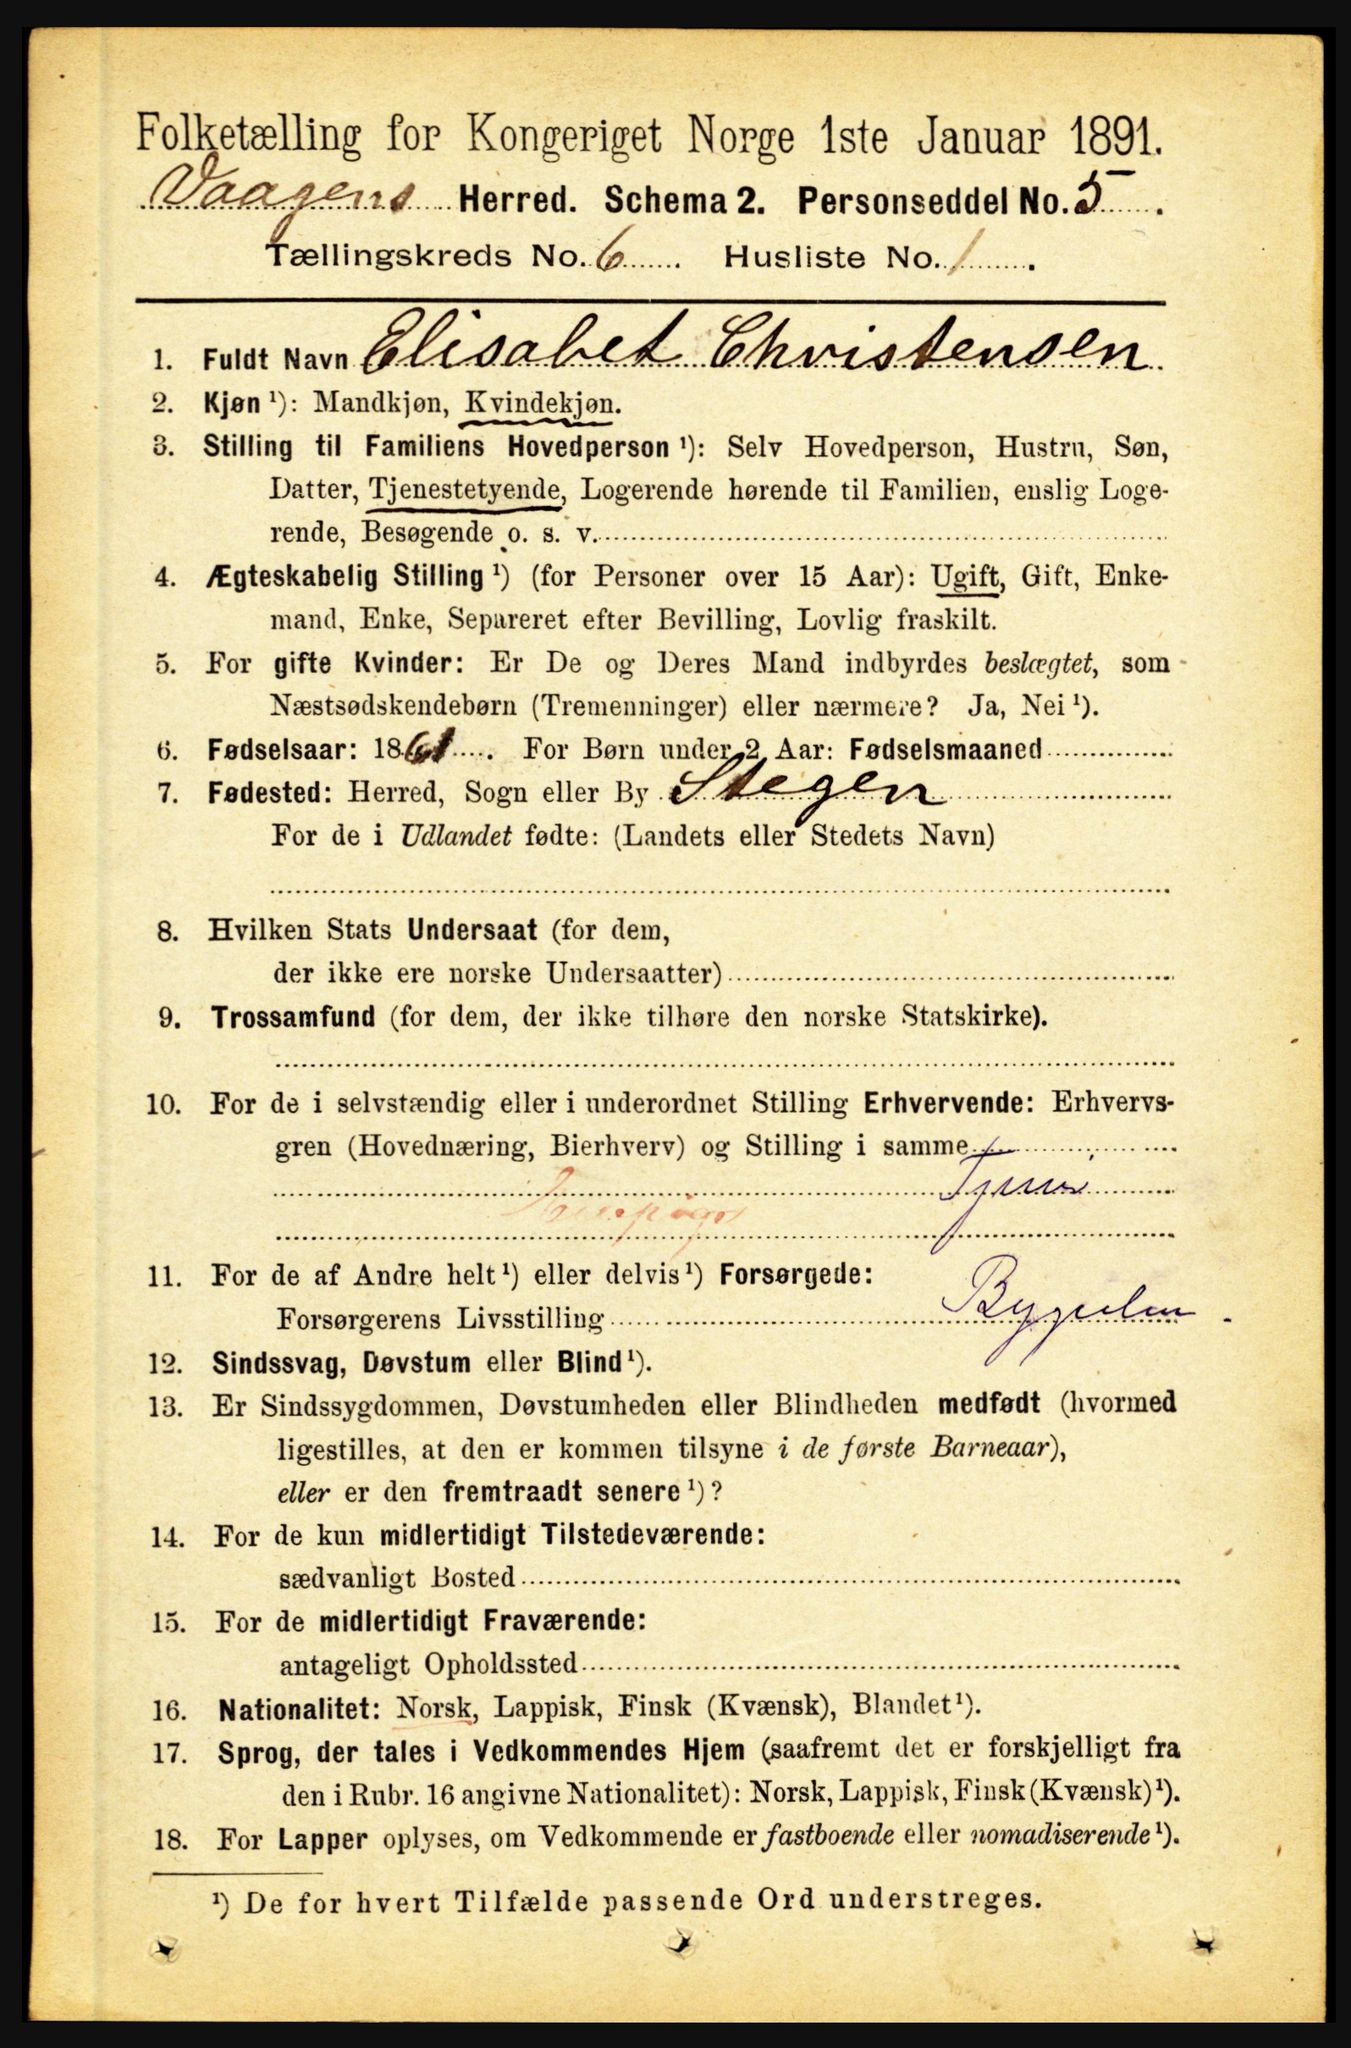 Folketælling for Kongeriget Norge 1ste Januar 1891.
Vaagens Herred. Schema 2. Personseddel No. 5.
Tællingskreds No. 6. Husliste No. 1.
1. Fuldt Navn Elisabet Christensen
2. Kjøn ¹): Mandkjøn, Kvindekjøn.
3. Stilling til Familiens Hovedperson ¹): Selv Hovedperson, Hustru, Søn,
Datter, Tjenestetyende, Logerende hørende til Familien, enslig Loge-
rende, Besøgende o. s. v.
4. Ægteskabelig Stilling ¹) (for Personer over 15 Aar): Ugift, Gift, Enke-
mand, Enke, Separeret efter Bevilling, Lovlig fraskilt.
5. For gifte Kvinder: Er De og Deres Mand indbyrdes beslægtet, som
Næstsødskendebørn (Tremenninger) eller nærmere? Ja, Nei ¹).
6. Fødselsaar: 1861. For Børn under 2 Aar: Fødselsmaaned
7. Fødested: Herred, Sogn eller By Stegen
For de i Udlandet fødte: (Landets eller Stedets Navn)
8. Hvilken Stats Undersaat (for dem,
der ikke ere norske Undersaatter)
9. Trossamfund (for dem, der ikke tilhøre den norske Statskirke).
10. For de i selvstændig eller i underordnet Stilling Erhvervende: Erhvervs-
gren (Hovednæring, Bierhverv) og Stilling i samme
11. For de af Andre helt ¹) eller delvis ¹) Forsørgede:
Forsørgerens Livsstilling
12. Sindssvag, Døvstum eller Blind ¹).
13. Er Sindssygdommen, Døvstumheden eller Blindheden medfødt (hvormed
ligestilles, at den er kommen tilsyne i de første Barneaar),
eller er den fremtraadt senere ¹)?
14. For de kun midlertidigt Tilstedeværende:
sædvanligt Bosted
15. For de midlertidigt Fraværende:
antageligt Opholdssted
16. Nationalitet: Norsk, Lappisk, Finsk (Kvænsk), Blandet ¹).
17. Sprog, der tales i Vedkommendes Hjem (saafremt det er forskjelligt fra
den i Rubr. 16 angivne Nationalitet): Norsk, Lappisk, Finsk (Kvænsk) ¹).
18. For Lapper oplyses, om Vedkommende er fastboende eller nomadiserende ¹).
¹) De for hvert Tilfælde passende Ord understreges.